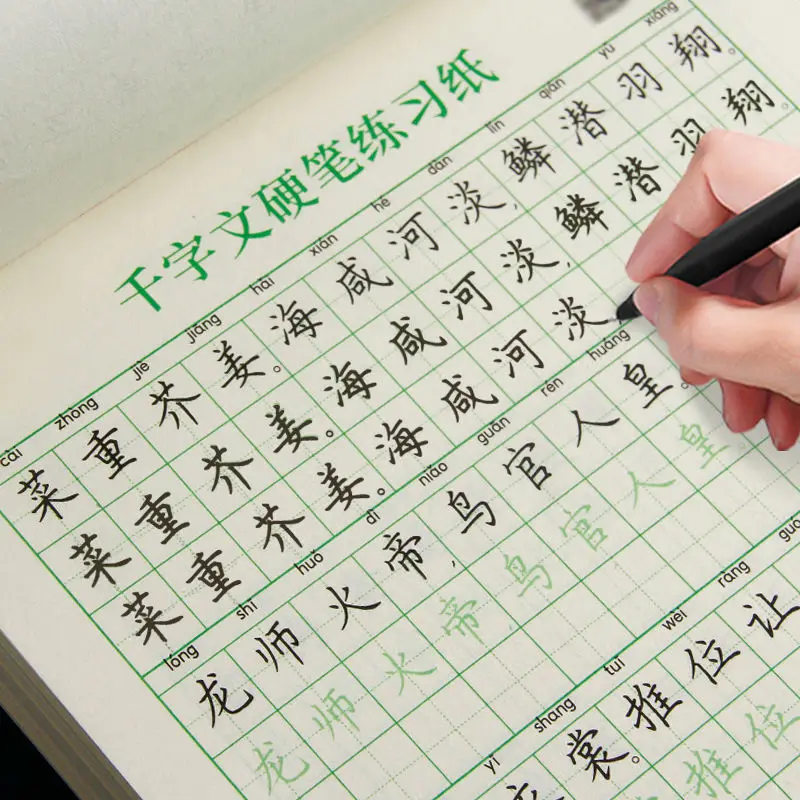 千字文硬笔练习纸
cài zhòng jiè jiāng hǎi xián hé dàn lín qián yǔ xiáng
菜重芥姜。海咸河淡,鳞潜羽翔。
菜重芥姜。海咸河淡,鳞潜羽翔。
菜重芥姜。海咸河淡
lóng shī huǒ dì niǎo guān rén huáng
龙师火帝,鸟官人皇。
龙师火帝鸟官人皇
yī shang tuī wèi ràng
裳。推位让
推位